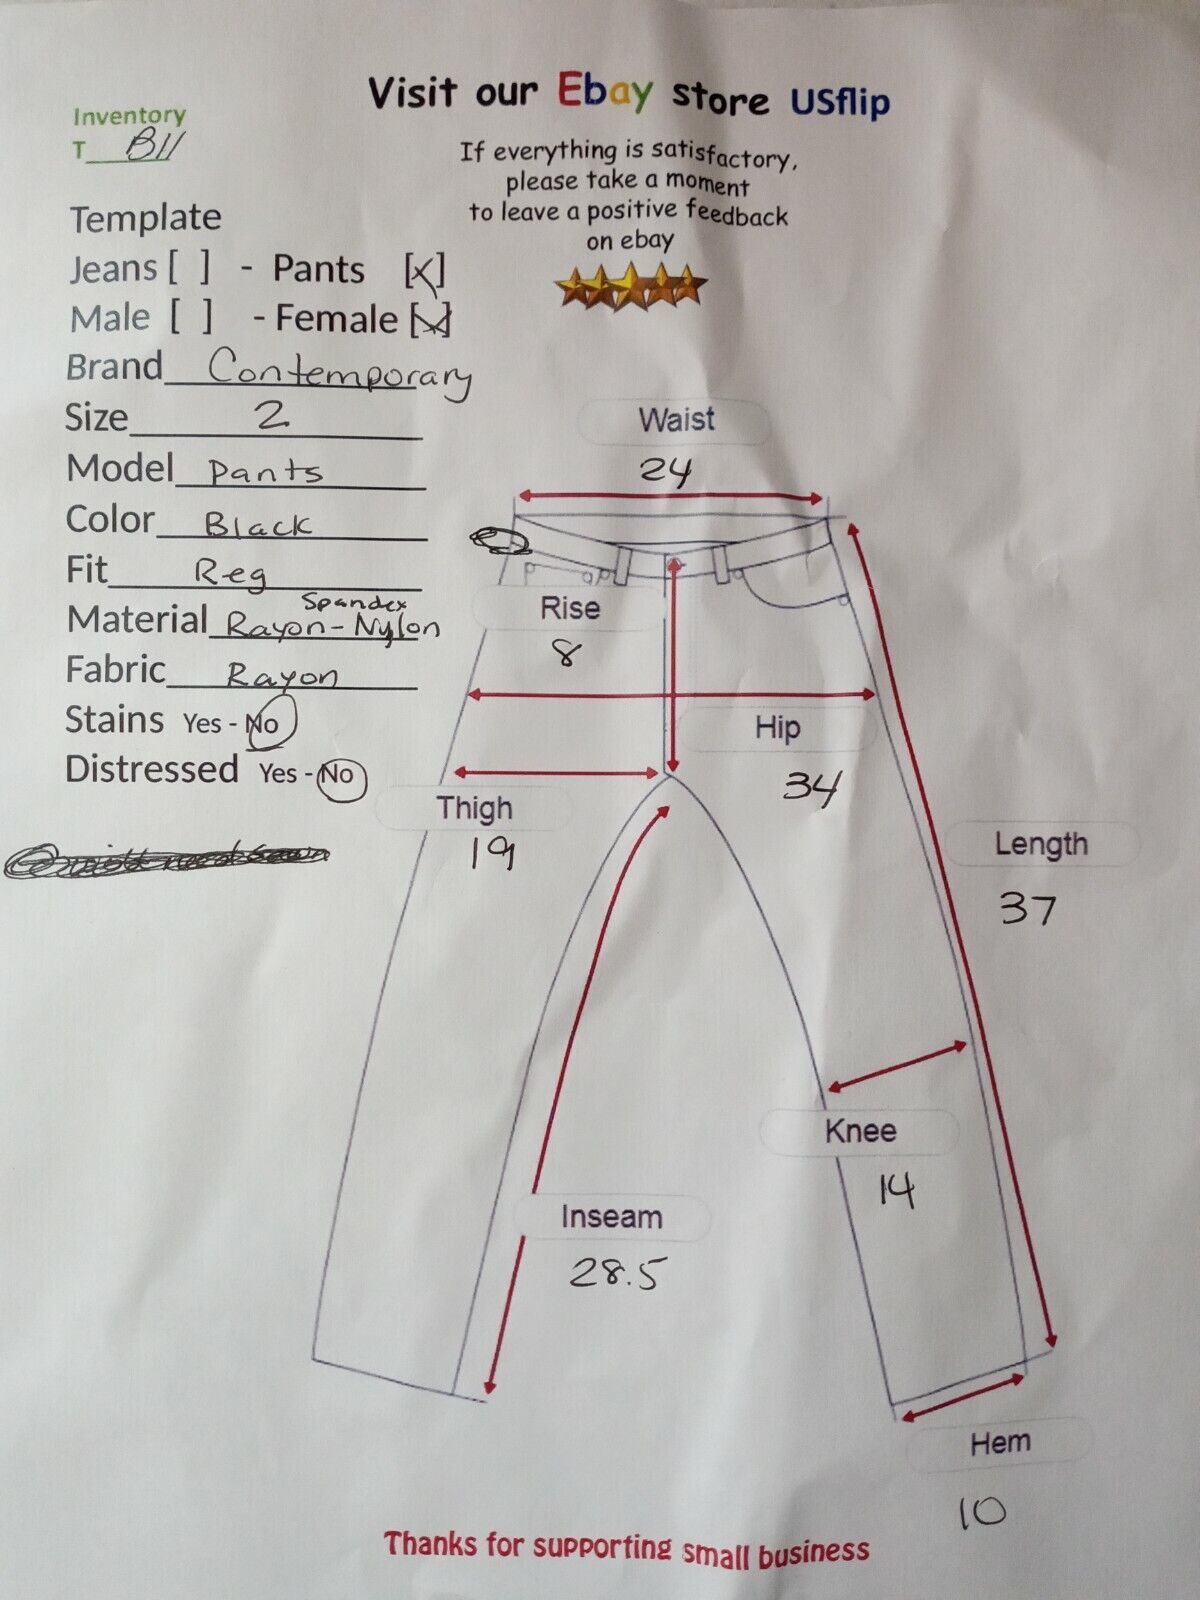 Visit our Ebay store USflip
If everything is satisfactory,
please take a moment
to leave a positive feedback
on ebay
Inventory
T B11
Template
Jeans [ ] - Pants [x]
Male [ ] - Female [x]
Brand Contemporary
Size 2
Model Pants
Color Black
Fit Reg
Spandex
Material Rayon-Nylon
Fabric Rayon
Stains Yes - No
Distressed Yes - No
Waist
24
Rise
8
Hip
34
Thigh
19
Length
37
Knee
14
Inseam
28.5
Hem
10
Thanks for supporting small business